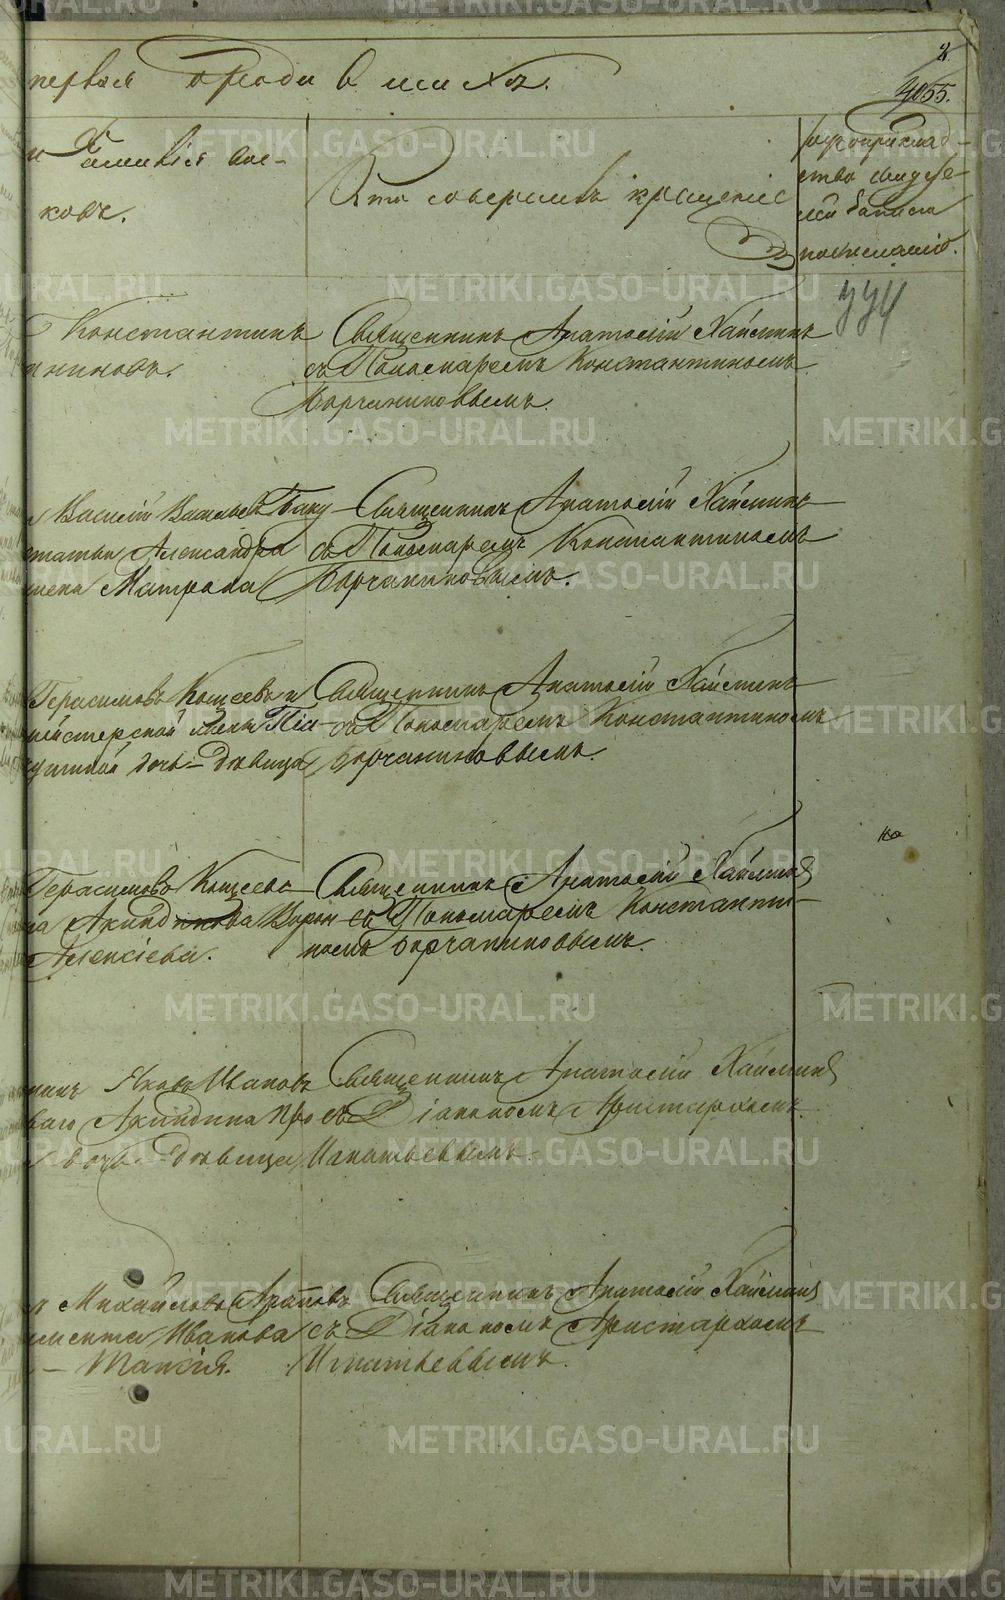 2
1055.
первая о роди в шихъ.
и Фамилія вос-
ковъ.
Кто совершалъ крещеніе
рукоприклад-
ство свидѣте-
лей записи
по желанію.
Константинъ
ниновъ.
Священникъ Анатолій Хайминъ
съ Пономаремъ Константиномъ
Борчаниновымъ.
Василій Васильевъ Баку
статьи Александра
мена Матрона
Священникъ Анатолій Хайминъ
съ Пономаремъ Константиномъ
Борчаниновымъ.
Герасимовъ Кощеевъ и
мейстерской
дочь-дѣвица
Священникъ Анатолій Хайминъ
съ Пономаремъ Константиномъ
Борчаниновымъ.
Герасимова Кощеева
на Акиндинова Ворон
Алексіева.
Священникъ Анатолій Хайминъ
съ Пономаремъ Константи-
номъ Борчаниновымъ.
Яковъ Ивановъ
ваго Акиндина Про
дочь-дѣвица
Священникъ Анатолій Хайминъ
съ Діакономъ Аристархомъ
Игнатьевымъ.
Михайловъ Араповъ
мента Иванова
- Таисія.
Священникъ Анатолій Хайминъ
съ Діакономъ Аристархомъ
Игнатьевымъ.
METRIKI.GASO-URAL.RU